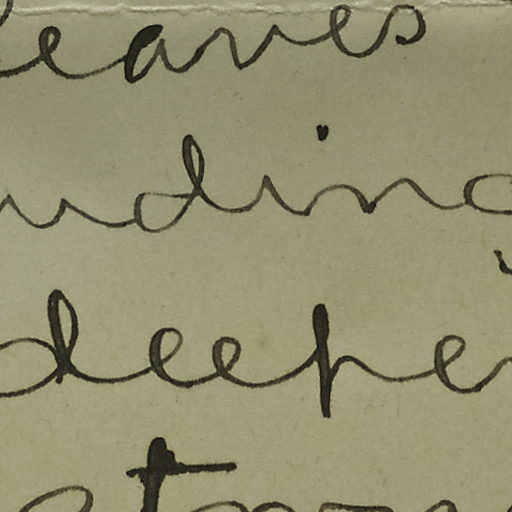 leaves
uding
deeper